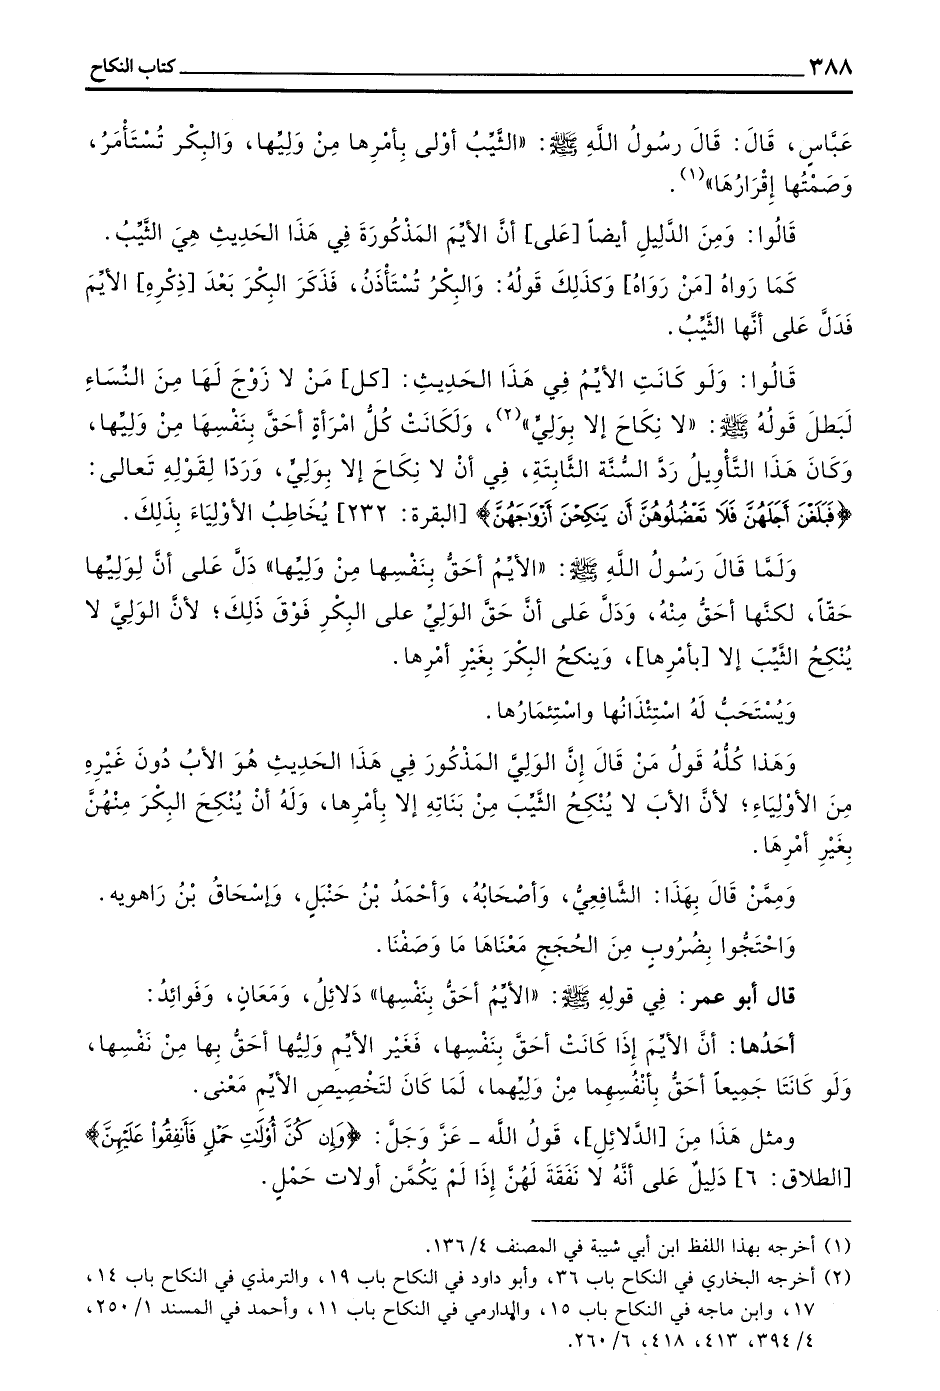 ٣٨٨ كتاب النكاح
عَبَّاسٍ، قَالَ: قَالَ رسُولُ اللَّهِ ﷺ: «الثَّيِّبُ أوْلى بِأمْرِها مِنْ وَلِيِّها، وَالبِكْر تُسْتَأْمَرُ،
وَصَمْتُها إقْرَارُهَا»(١).
قَالُوا: وَمِنَ الدَّلِيلِ أيضاً [عَلى] أنَّ الأيِّمَ المَذْكُورَةَ فِي هَذَا الحَدِيثِ هِيَ الثَّيِّبُ.
كَمَا رَواهُ [مَنْ رَوَاهُ] وَكذلِكَ قوْلُهُ: وَالبِكْرُ تُسْتَأْذَنُ، فَذَكَرَ البِكْرَ بَعْدَ [ذِكْرِهِ] الأيِّمَ
فَدَلَّ عَلى أنَّها الثَّيِّبُ.
قَالُوا: وَلَو كَانَتِ الأيِّمُ فِي هَذَا الحَدِيثِ: [كل] مَنْ لا زَوْجَ لَهَا مِنَ النِّسَاءِ
لَبَطلَ قَولُهُ ﷺ: «لا نِكَاحَ إلا بِوَلِيِّ»(٢)، وَلَكَانَتْ كُلُّ امْرَأةٍ أحَقَّ بِنَفْسِهَا مِنْ وَلِيِّها،
وَكَانَ هَذَا التَّأْوِيلُ رَدَّ السُّنَّة الثَّابتَةِ، فِي أنْ لا نِكَاحَ إلا بِوَلِيِّ، وَرَدّا لِقَوْلِهِ تَعالى:
﴿فَبَلَغْنَ أَجَلَهُنَّ فَلَا تَعْضُلُوهُنَّ أَن يَنكِحْنَ أَزْوَٰجَهُنَّ﴾ [البقرة: ٢٣٢] يُخَاطِبُ الأوْلِيَاءَ بِذَلِكَ.
وَلَمَّا قَالَ رَسُولُ اللَّهِ ﷺ: «الأيِّمُ أحَقُّ بِنَفْسِها مِنْ وَلِيِّها» دَلَّ عَلى أنَّ لِوَلِيِّها
حَقّاً، لكنَّها أحَقُّ مِنْهُ، وَدَلَّ عَلى أنَّ حَقَّ الوَلِيِّ على البِكْرِ فَوْقَ ذَلِكَ؛ لأنَّ الوَلِيَّ لا
يُنْكِحُ الثَّيِّبَ إلا [بأمْرِها]، وَينكحُ البِكْرَ بِغَيْرِ أمْرِها.
وَيُسْتَحَبُّ لَهُ اسْتِئْذَانُها واسْتِئمَارُها.
وَهَذا كُلُّهُ قَولُ مَنْ قَالَ إنَّ الوَلِيَّ المَذْكُورَ فِي هَذَا الحَدِيثِ هُوَ الأبُ دُونَ غَيْرِهِ
مِنَ الأوْلِيَاءِ؛ لأنَّ الأبَ لا يُنْكِحُ الثَّيِّبَ مِنْ بَنَاتِهِ إلا بِأمْرِها، وَلَهُ أنْ يُنْكِحَ البِكْرَ مِنْهُنَّ
بِغَيْرِ أمْرِهَا.
وَمِمَّنْ قَالَ بِهَذَا: الشَّافِعِيُّ، وَأصْحَابُهُ، وَأحْمَدُ بْنُ حَنْبَلٍ، وَإسْحَاقُ بْنُ رَاهويه.
وَاحْتَجُّوا بِضُرُوبٍ مِنَ الحُجَجِ مَعْنَاهَا مَا وَصَفْنَا.
قال أبو عمر: فِي قولِهِ ﷺ: «الأيِّمُ أحَقُّ بِنَفْسِها» دَلائِلُ، وَمَعَانٍ، وَفَوائِدُ:
أحَدُها: أنَّ الأيِّمَ إذَا كَانَتْ أحَقَّ بِنَفْسِها، فَغَيْر الأيِّمِ وَلِيُّها أحَقُّ بِها مِنْ نَفْسِها،
وَلَو كَانَتَا جَمِيعاً أحَقُّ بأنْفُسِهِما مِنْ وَلِيِّهِما، لَمَا كَانَ لتَخْصِيصِ الأيِّمِ مَعْنى.
ومثل هَذَا مِنَ [الدَّلائِلِ]، قَولُ اللَّه ـ عَزَّ وَجَلَّ: ﴿وَإِن كُنَّ أُوْلَٰتِ حَمْلٍ فَأَنفِقُواْ عَلَيْهِنَّ﴾
[الطلاق: ٦] دَلِيلٌ عَلى أنَّهُ لا نَفَقَةَ لَهُنَّ إذَا لَمْ يَكُمَّن أولات حَمْلٍ.
(١) أخرجه بهذا اللفظ ابن أبي شيبة في المصنف ٤/ ١٣٦.
(٢) أخرجه البخاري في النكاح باب ٣٦، وأبو داود في النكاح باب ١٩، والترمذي في النكاح باب ١٤،
١٧، وابن ماجه في النكاح باب ١٥، والدارمي في النكاح باب ١١، وأحمد في المسند ١/ ٢٥٠،
٤/ ٣٩٤، ٤١٣، ٤١٨، ٦/ ٢٦٠.